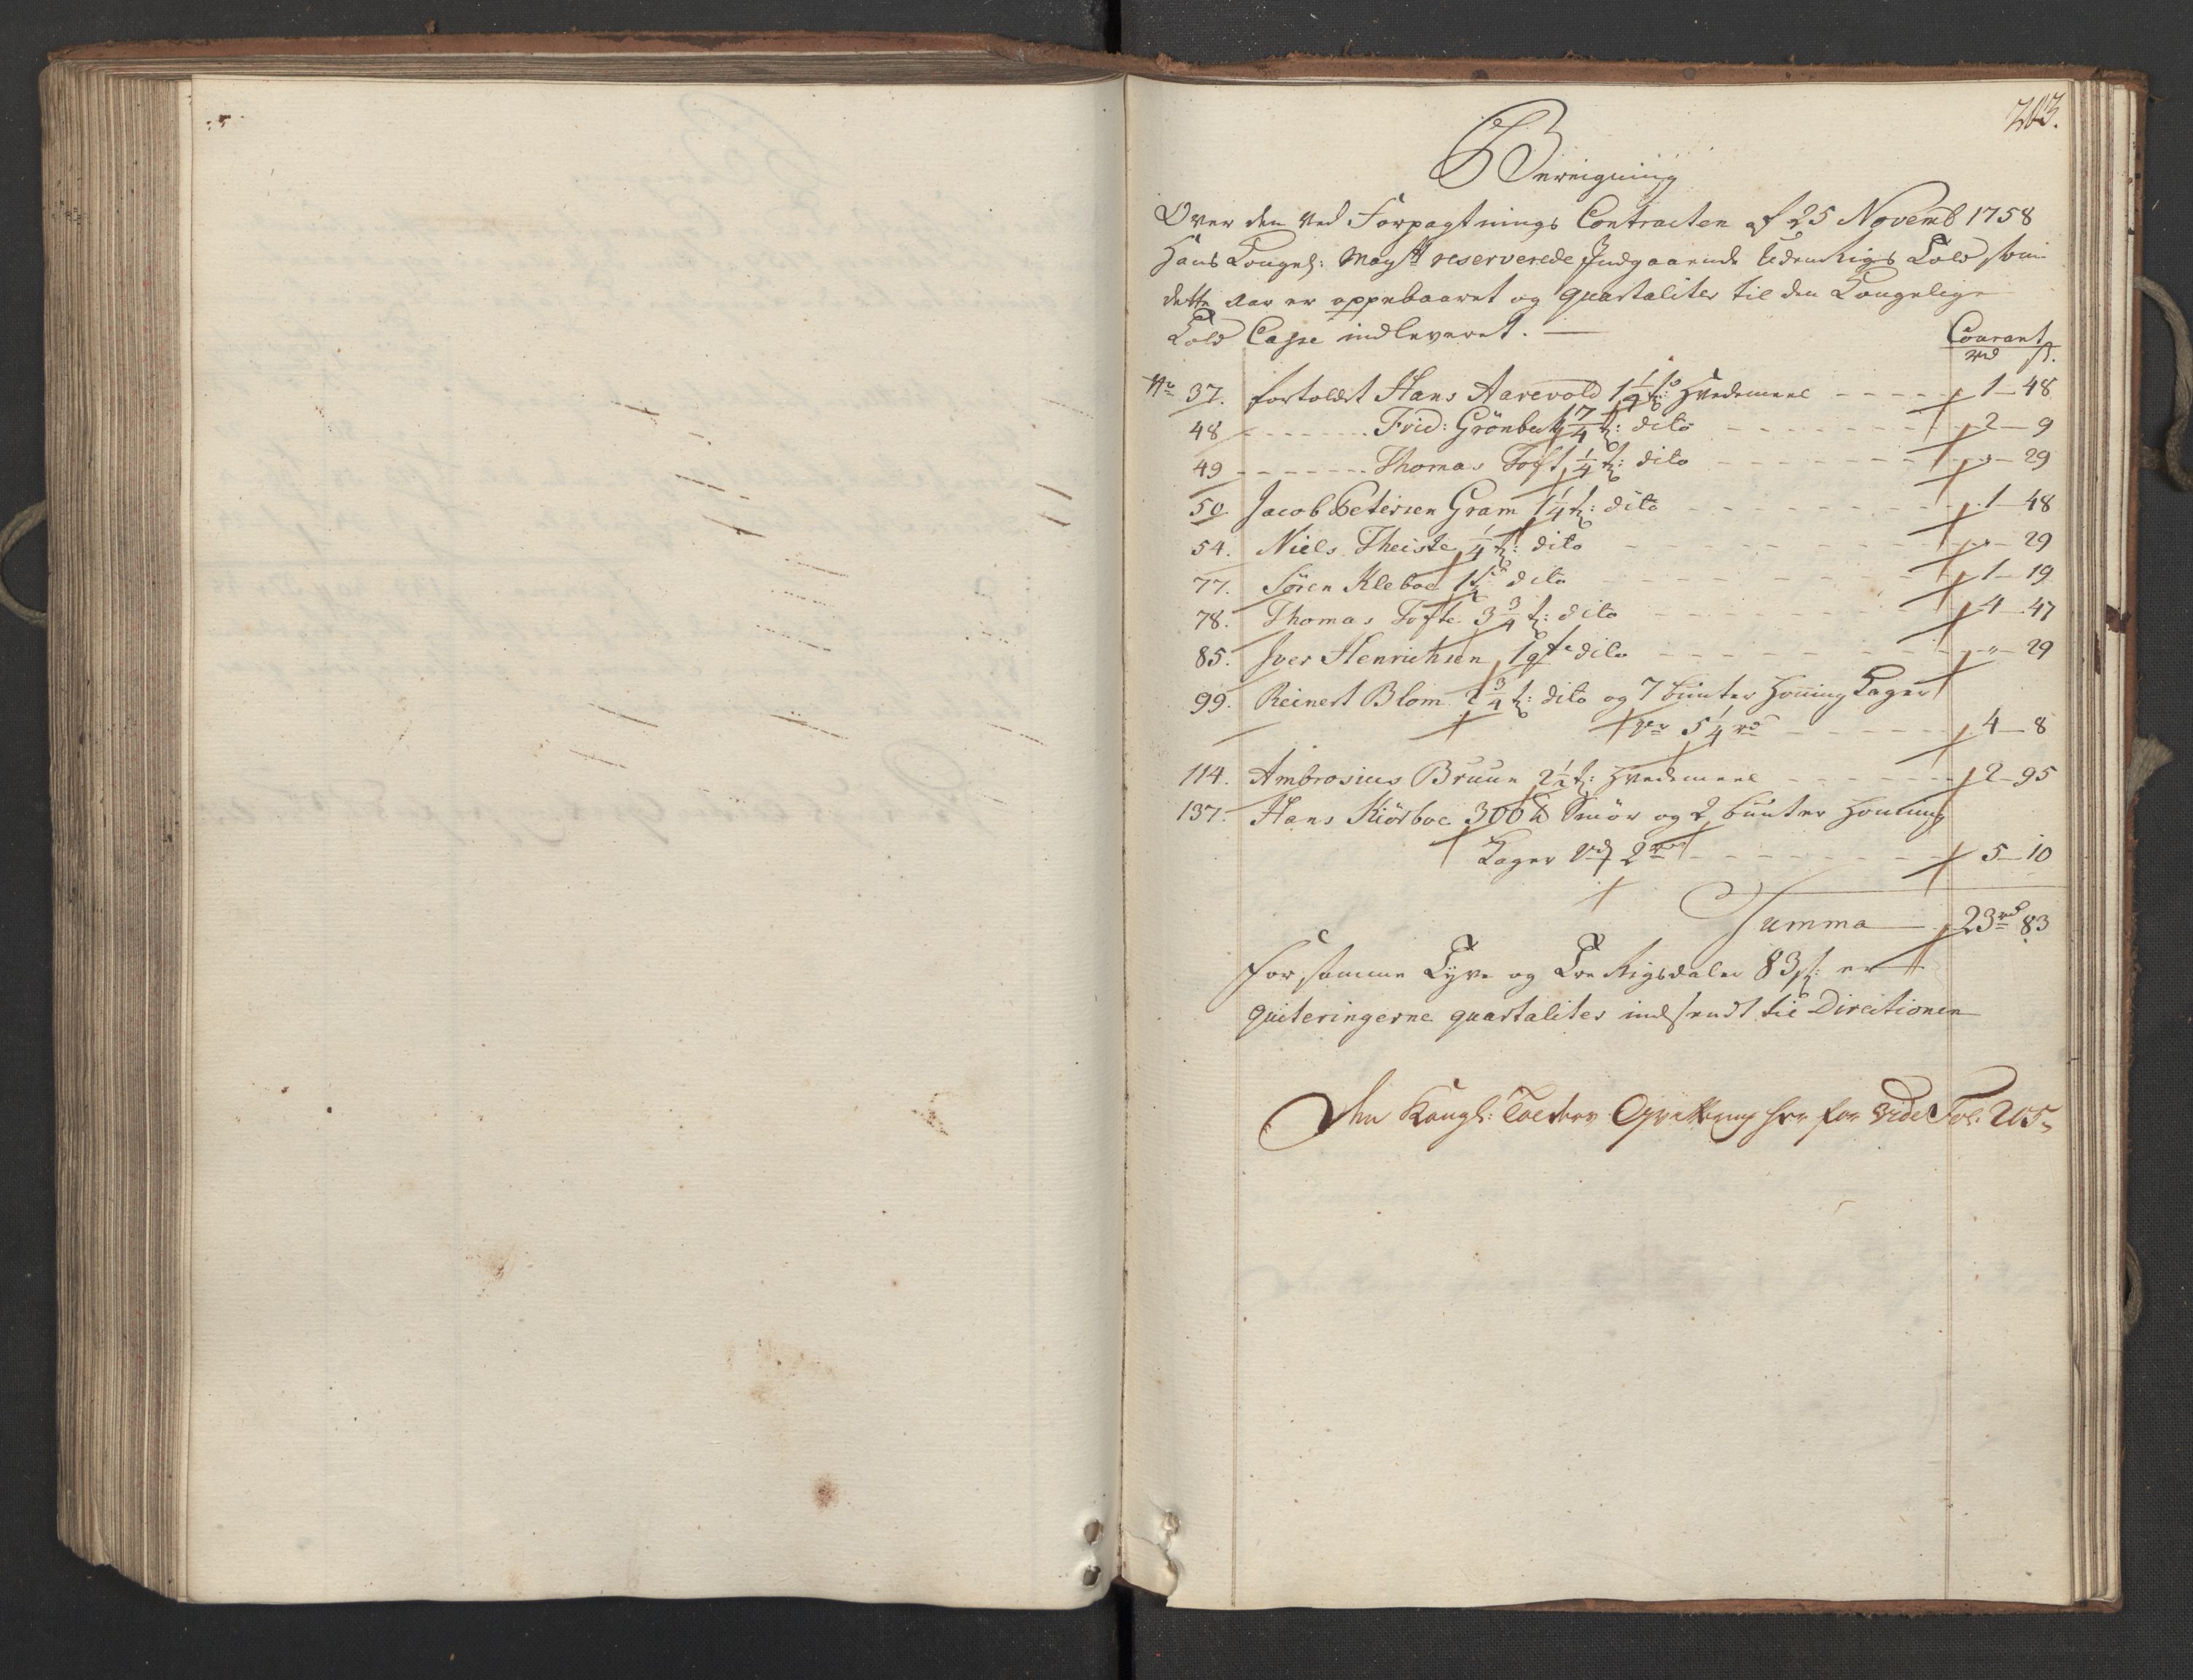 203.
Bereigning
Over den ved Forpagtnings Contracten af 25 Novemb 1758
Hans Kongel: Mayts reserverede Indgaaende Udenrigs Told, som
dette aar er oppebaaret og quartaliter til den Kongelige
Told Casse indleveret. —
Courant
rd s.
No 37. fortoldet Hans Aarevold 1 1/4 t: Hvedemeel - - - - 1 - 48
48 - - - - - Frid: Grönbeck 1 3/4 t: dito - - - - - - 2 - 9
49 - - - - - Thomas Toft 1/4 t: dito - - - - - - " - 29
50 Jacob Petersen Gram 1 1/4 t: dito - - - - - - 1 - 48
54. Niels Theiste 1/4 t: dito - - - - - - " - 29
77. Sören Kleboe 1 t: dito - - - - - - 1 - 19
78. Thomas Tofte 3 3/4 t: dito - - - - - - 4 - 47
85. Iver Henrichsen 1 qt dito - - - - - - " - 29
99. Reinert Blom 2 3/4 t: dito og 7 bunter Honning Kager
5 1/4 rd - - - - - - 4 - 8
114. Ambrosius Bruun 2 1/2 t: Hvedemeel - - - - - 2 - 95
137. Hans Kiörboe 300 ℔ Smör og 2 bunter Honning
Kager 2 rd - - - - - - 5 - 10
Summa - 23 rd 83
for samme Tyve og Tre Rigsdaler 83 s: er
quiteringerne quartaliter indsendt til Directionen
Kongl: vide Fol: 205,